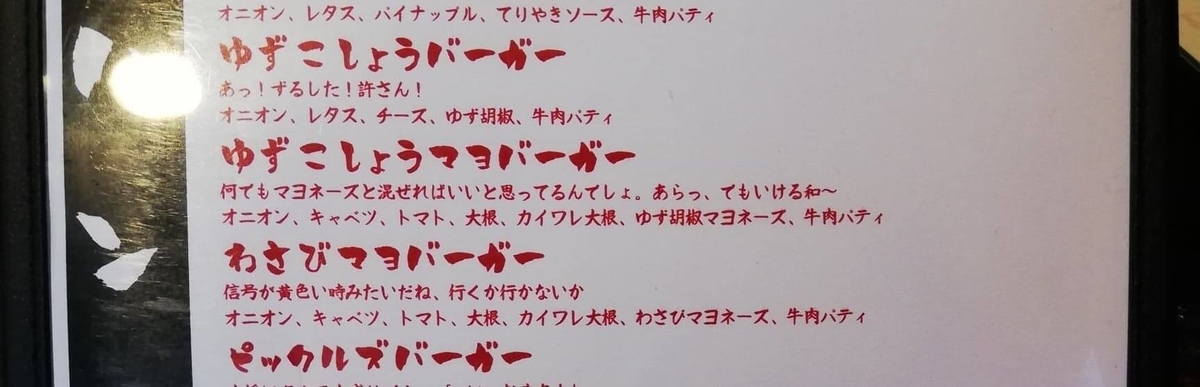 オニオン、レタス、パイナップル、てりやきソース、牛肉パティ
ゆずこしょうバーガー
あっ！ずるした！許さん！
オニオン、レタス、チーズ、ゆず胡椒、牛肉パティ
ゆずこしょうマヨバーガー
何でもマヨネーズと混ぜればいいと思ってるんでしょ。あらっ、でもいける和〜
オニオン、キャベツ、トマト、大根、カイワレ大根、ゆず胡椒マヨネーズ、牛肉パティ
わさびマヨバーガー
信号が黄色い時みたいだね、行くか行かないか
オニオン、キャベツ、トマト、大根、カイワレ大根、わさびマヨネーズ、牛肉パティ
ピックルズバーガー